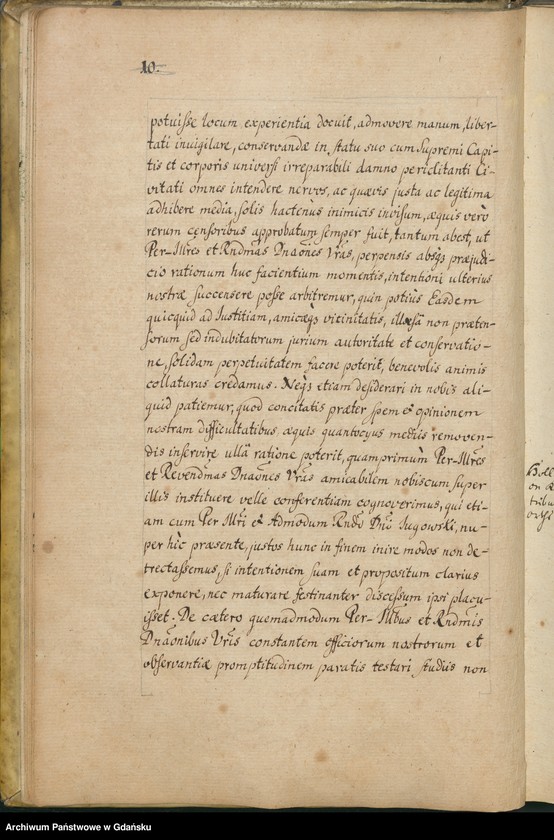 10.
potuisse locum experientia docuit, admovere manum, liber-
tati invigilare, conservandæ in statu suo cum Supremi Capi-
tis et corporis universi irreparabili damno periclitanti Ci-
vitati omnes intendere nervos, ac quævis justa ac legitima
adhibere media, solis hactenus inimicis invisum, æquis verò
rerum censoribus approbatum semper fuit, tantum abest, ut
Per-Illres et Rndmas Dnaōnes Vras, perpensis absqz præjudi-
cio rationum huc facientium momentis, intentioni ulterius
nostræ succensere posse arbitremur, quin potius Easdem
quicquid ad Iustitiam, amicæqz vicinitatis, illæsâ non præten-
sorum sed indubitatorum jurium autoritate et conservatio-
ne, solidam perpetuitatem facere poterit, benevolis animis
collaturas credamus. Neqz etiam desiderari in nobis ali-
quid patiemur, quod concitatis præter spem & opinionem
nostram difficultatibus æquis quantocyus mediis removen-
dis inservire ullâ ratione poterit, quamprimum Per-Illres
et Revendmas Dnaōnes Vras amicabilem nobiscum super
illis instituere velle conferentiam cognoverimus, qui eti-
am cum Per Illri & Admodum Rndo Dno Iugowski, nu-
per hîc præsente, justos hunc in finem inire modos non de-
trectassemus, si intentionem suam et propositum clarius
exponere, nec maturare festinanter discessum ipsi placu-
isset. De cætero quemadmodum Per-Illbus et Rndmis
Dnaōnibus Vris constantem officiorum nostrorum et
observantiæ promptitudinem paratis testari studiis non